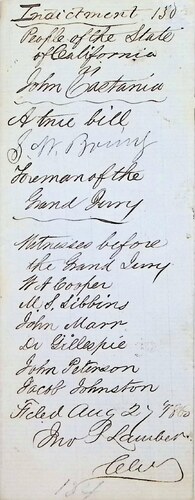 Indictment 180
People of the State
of California
vs
John Castania
A true bill
Foreman of the
Grand Jury
Witnesses before
the Grand Jury
W A Cooper
M. S. Libbins
John Marr
Dr Gillespie
John Peterson
Jacob Johnston
Filed Aug 27
Jno P Lambert
Clerk